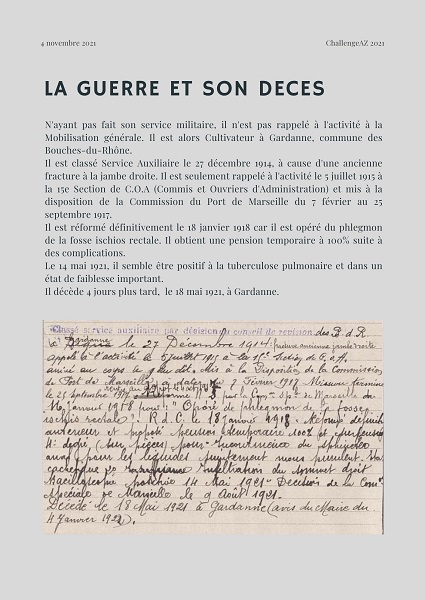 4 novembre 2021
ChallengeAZ 2021
LA GUERRE ET SON DECES
N'ayant pas fait son service militaire, il n'est pas rappelé à l'activité à la
Mobilisation générale. Il est alors Cultivateur à Gardanne, commune des
Bouches-du-Rhône.
Il est classé Service Auxiliaire le 27 décembre 1914, à cause d'une ancienne
fracture à la jambe droite. Il est seulement rappelé à l'activité le 5 juillet 1915 à
la 15e Section de C.O.A (Commis et Ouvriers d'Administration) et mis à la
disposition de la Commission du Port de Marseille du 7 février au 25
septembre 1917.
Il est réformé définitivement le 18 janvier 1918 car il est opéré du phlegmon
de la fosse ischios rectale. Il obtient une pension temporaire à 100% suite à
des complications.
Le 14 mai 1921, il semble être positif à la tuberculose pulmonaire et dans un
état de faiblesse important.
Il décède 4 jours plus tard, le 18 mai 1921, à Gardanne.
Classé service auxiliaire par décision du conseil de revision des B d R
le 27 Décembre 1914. fracture ancienne jambe droite
appelé à l'activité le 5 juillet 1915 à la 15e Section
arrivé au corps le dit. Mis à la Disposition de la Commission
du Port de Marseille à dater du 7 Février 1917. Mission terminée
le 25 Septembre 1917. Réformé par la Com. de Marseille du
Janvier 1918 pour "Opéré de phlegmon de la fosse
ischio rectale". R.d.C. le 18 Janvier 1918.
pension temporaire 100%
pour incontinence du sphincter
anal pour les liquides
infiltration du sommet droit
14 Mai 1921. Décision de la Com
Spéciale de Marseille le 9 Août 1921.
Décédé le 18 Mai 1921 à Gardanne (avis du Maire du
4 Janvier 1922).